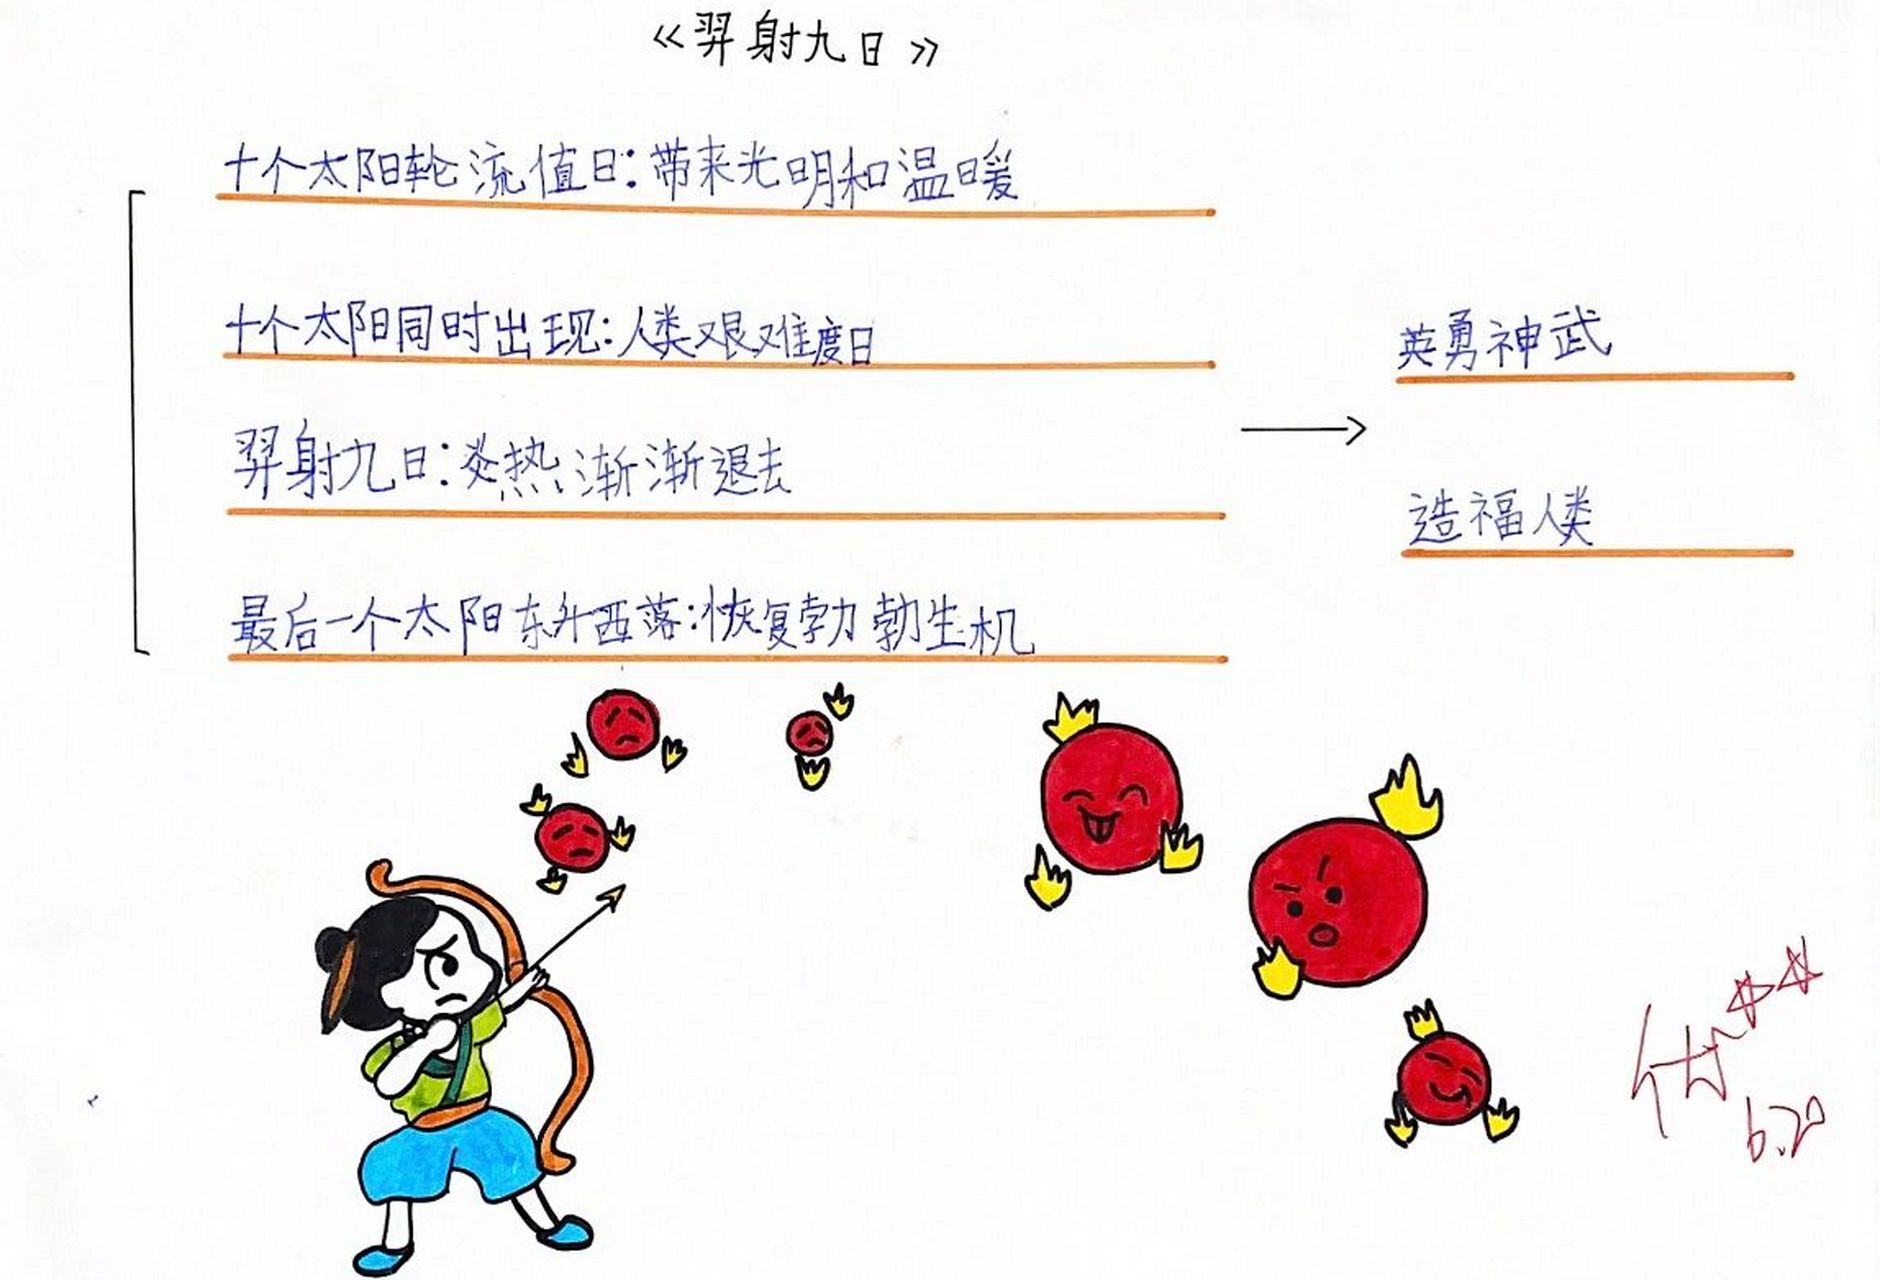 《羿射九日》
十个太阳轮流值日：带来光明和温暖
十个太阳同时出现：人类艰难度日
羿射九日：炎热渐渐退去
最后一个太阳东升西落：恢复勃勃生机
英勇神武
造福人类
优
6.20